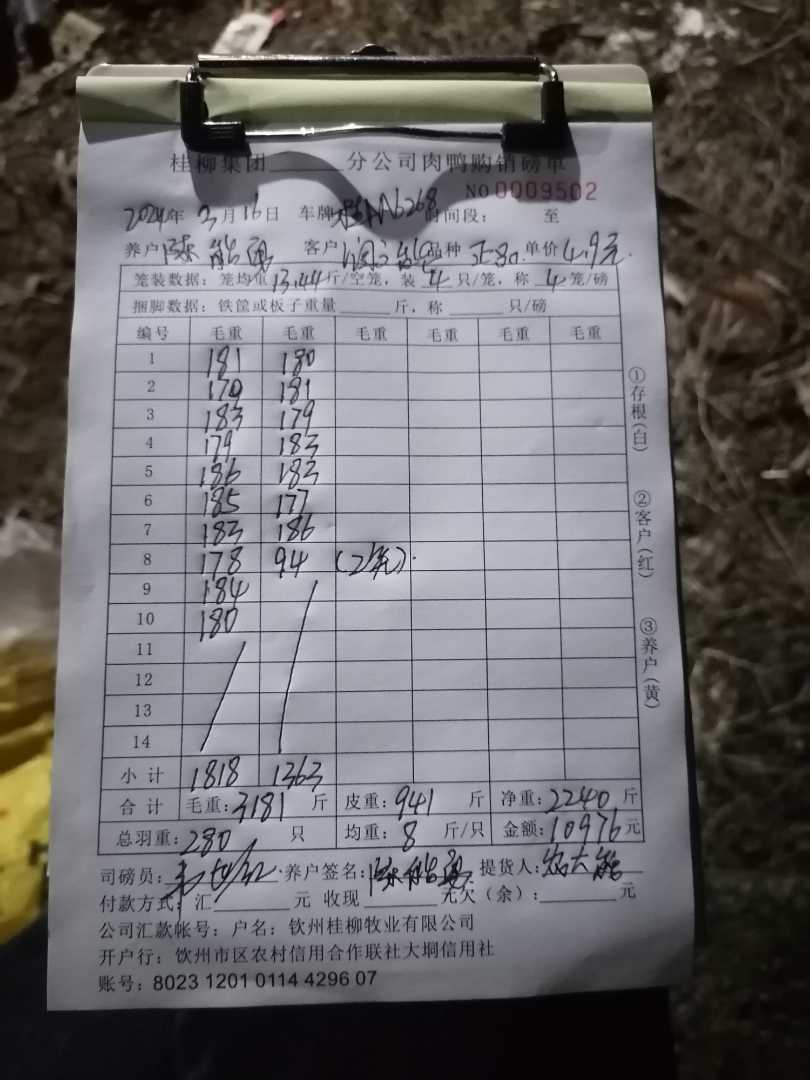 桂柳集团______分公司肉鸭购销磅单
NO 0009502
2024年 3月16日 车牌 N6268 时间段: 至
养户 陈能 客户 品种 单价 4.9元
笼装数据: 笼均重 13.44 斤/空笼, 装 4 只/笼, 称 4 笼/磅
捆脚数据: 铁筐或板子重量______斤, 称______只/磅
编号 毛重 毛重 毛重 毛重 毛重 毛重
1 181 180
2 179 181
3 183 179
4 179 183
5 186 183
6 185 177
7 183 186
8 178 94 (2笼)
9 184
10 180
11
12
13
14
小计 1818 1363
合计 毛重: 3181 斤 皮重: 941 斤 净重: 2240 斤
总羽重: 280 只 均重: 8 斤/只 金额: 10976 元
司磅员: 养户签名: 陈能 提货人:
付款方式: 汇______元 收现______元欠(余):______元
公司汇款帐号: 户名: 钦州桂柳牧业有限公司
开户行: 钦州市区农村信用合作联社大垌信用社
账号: 8023 1201 0114 4296 07
①存根(白)
②客户(红)
③养户(黄)